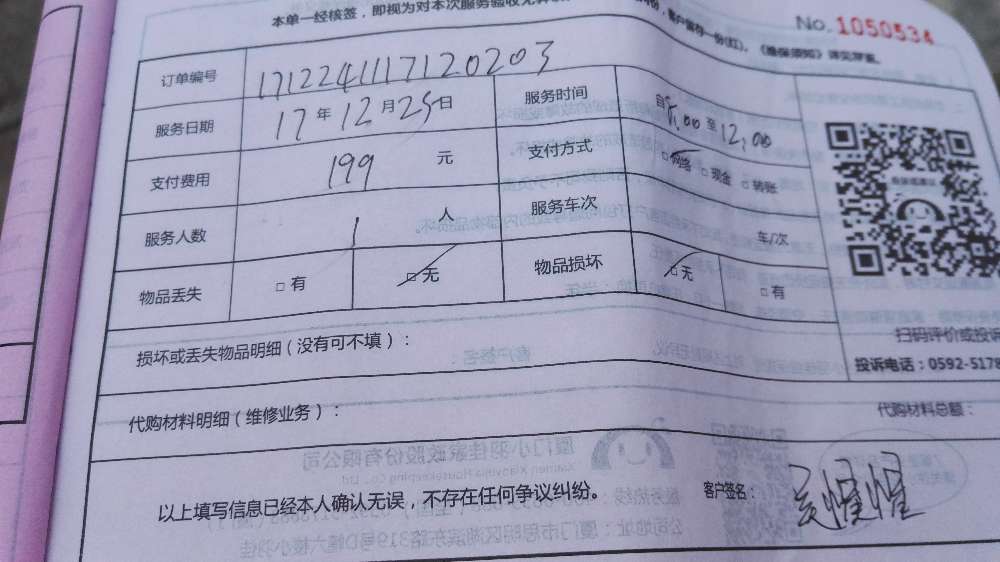 本单一经核签，即视为对本次服务验收无异
客户留存一份(红)。《维保须知》详见背面。
No. 1050534
订单编号 1712241117120203
服务日期 17年12月25日 服务时间 自8:00至12:00
支付费用 199 元 支付方式 □网络 □现金 □转账
服务人数 1 人 服务车次 车/次
物品丢失 □有 □无 物品损坏 □无 □有
损坏或丢失物品明细（没有可不填）：
扫码评价或投诉
投诉电话：0592-5178
代购材料明细（维修业务）：
代购材料总额：
以上填写信息已经本人确认无误，不存在任何争议纠纷。
客户签名：
厦门小羽佳家政股份有限公司
Xiamen Xiaoyujia Housekeeping Co., Ltd
公司地址：厦门市思明区湖滨东路319号D幢六楼小羽佳